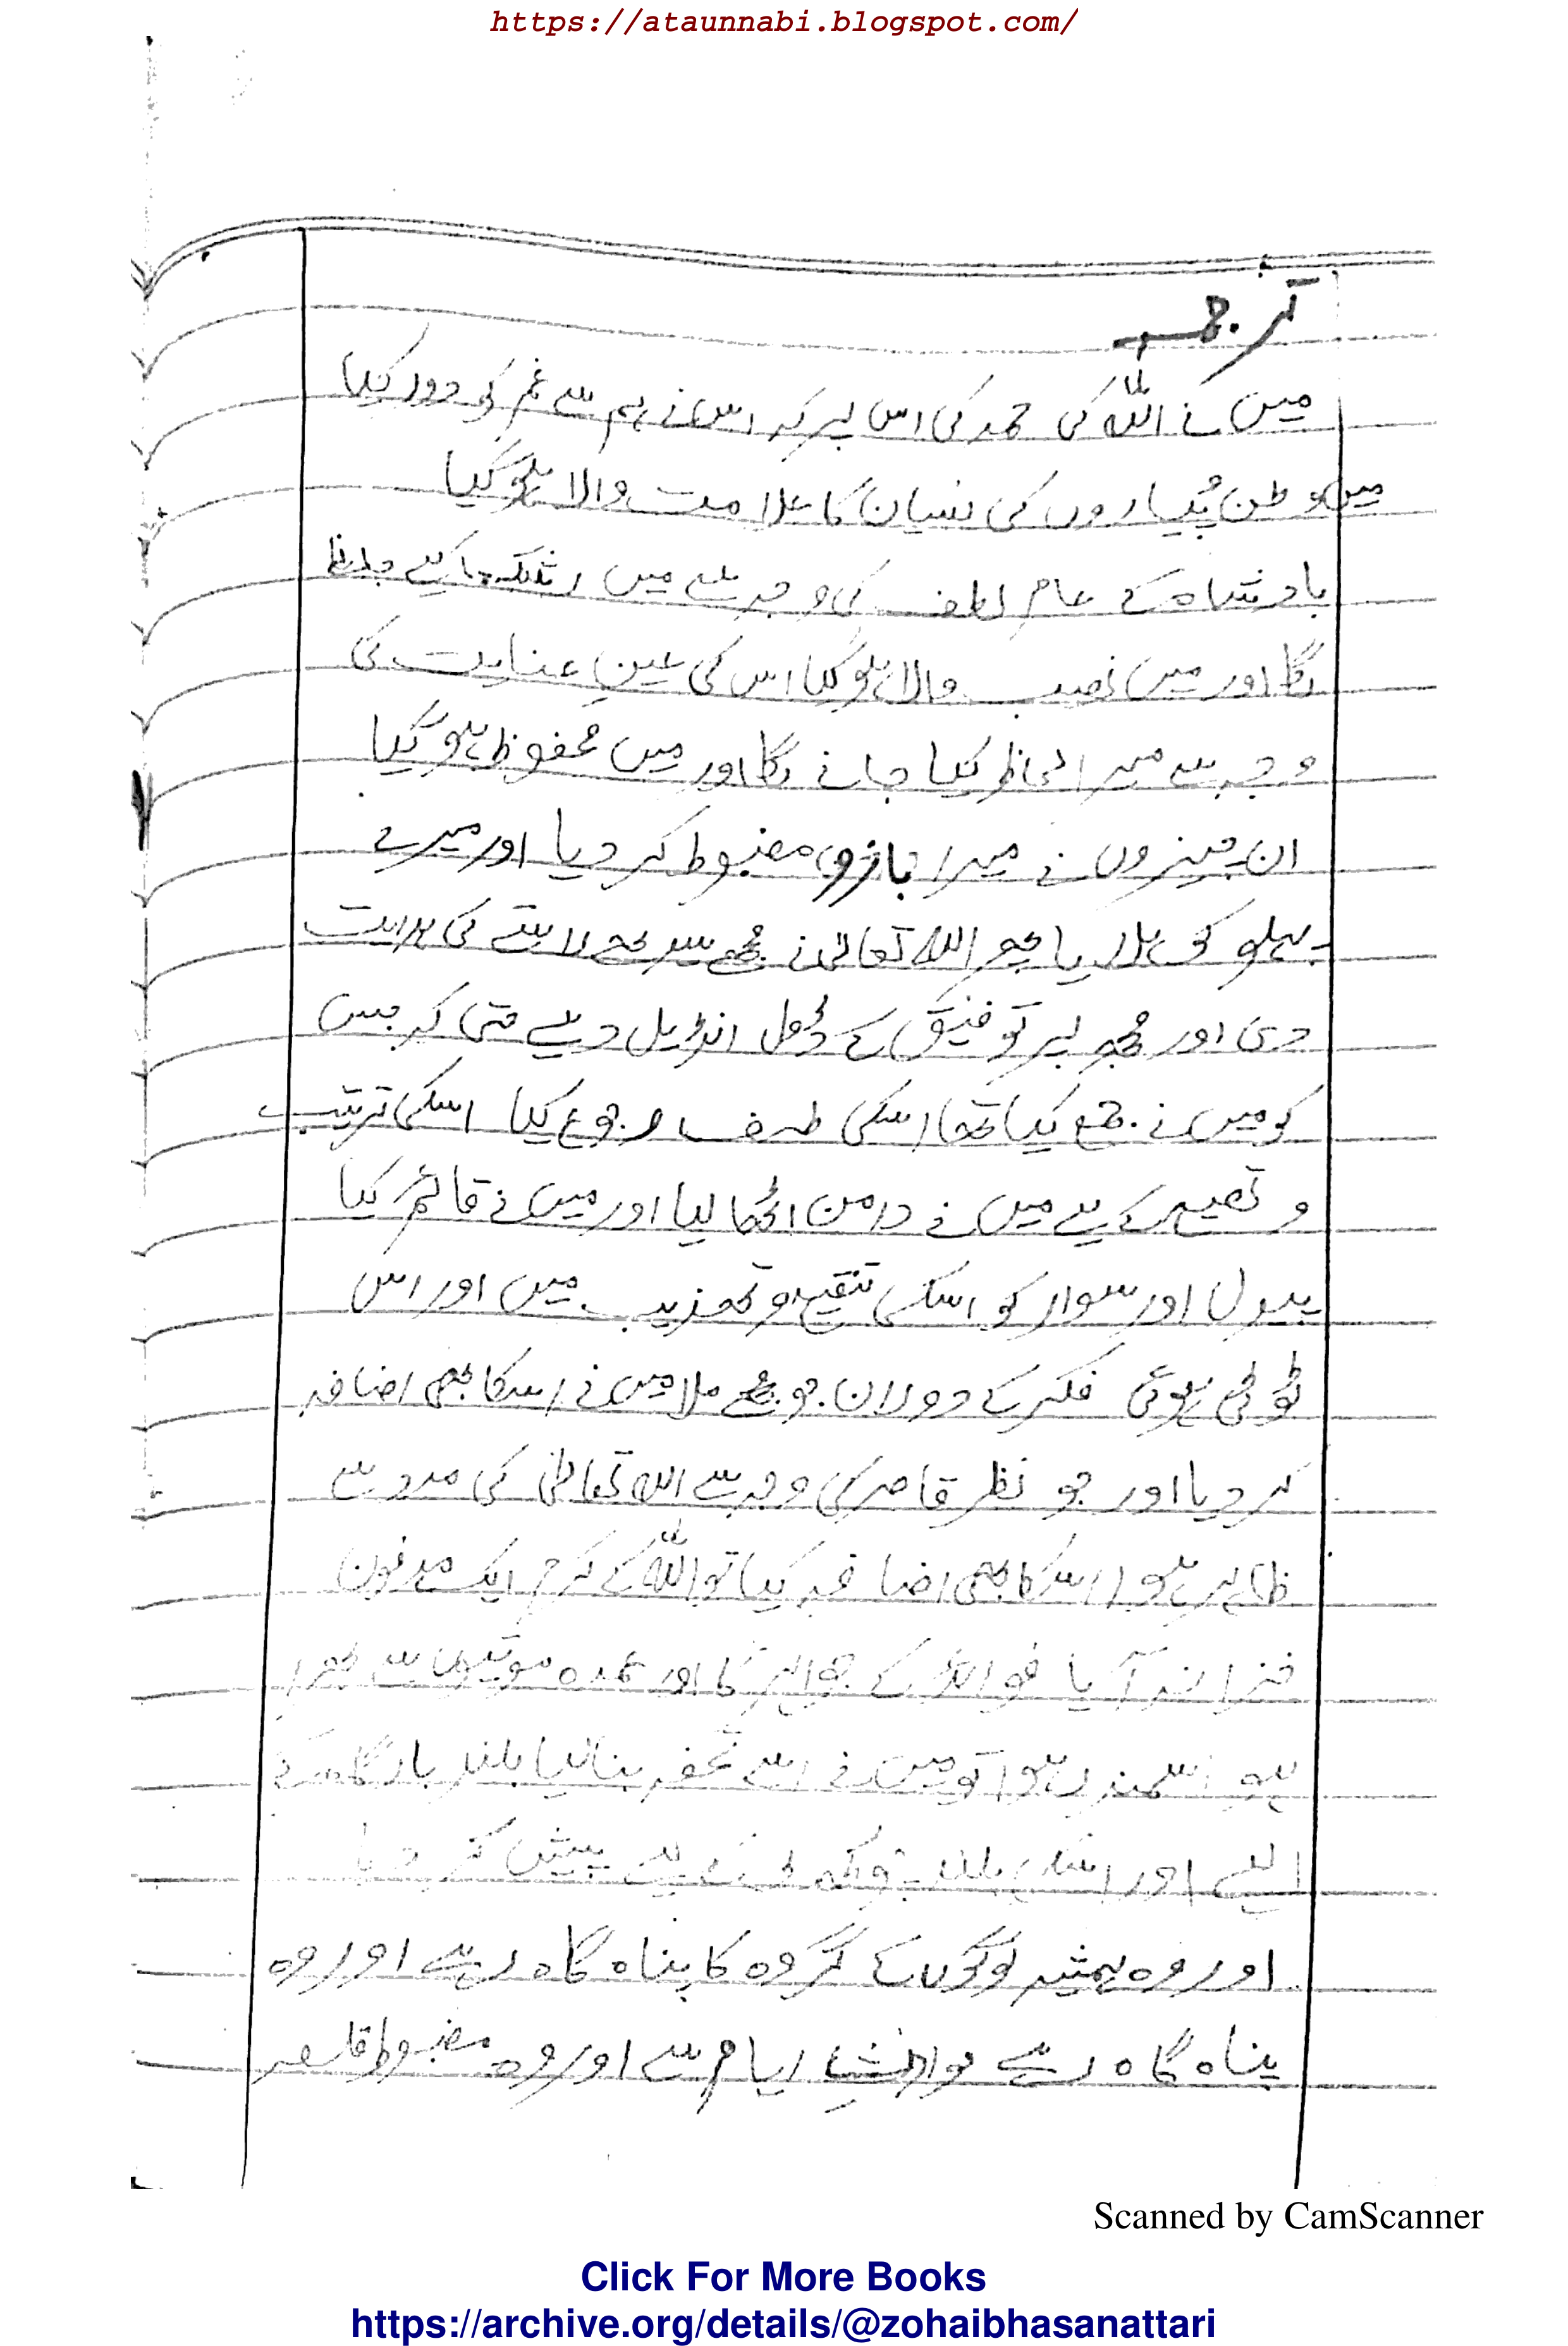 https://ataunnabi.blogspot.com/
ترجمہ
میں نے اللّٰہ کی حمد کی اس پر کہ اس نے ہم سے غم کی دور کیا
میں وطن پیاروں کی نسیان کا علامت والا ہو گیا
بادشاہ کے عام لطف کی وجہ سے میں رشک
لگا اور میں نصیب والا ہو گیا اس کی عینِ عنایت کی
وجہ سے میرا لحاظ کیا جانے لگا اور میں محفوظ ہو گیا
ان چیزوں نے میرا بازو مضبوط کر دیا اور میرے
پہلو کو ہلا دیا پھر اللہ تعالیٰ نے مجھے سیدھے راستے کی ہدایت
دی اور مجھ پر توفیق کے ڈول انڈیل دیے حتی کہ جس
کو میں نے جمع کیا تھا اسکی طرف رجوع کیا اسکی ترتیب
و تصیر کے لیے میں نے دامن اٹھا لیا اور میں نے قائم کیا
پیدل اور سوار کو اسکی تنقیح و تھذیب میں اور اس
ٹوٹی ہوئی فکر کے دوران جو مجھے ملا میں نے اسکا بھی اضافہ
کر دیا اور جو نظر قاصر کی وجہ سے اللہ تعالیٰ کی مدد سے
ظاہر ہو اسکا بھی اضافہ کیا تو اللّٰہ کے کرم ایک مدفون
خزانہ آ یا فوائد کے جواہر کا اور عمدہ موتیوں سے بھرا
ہو اسمندر ہوا تو میں نے اسے تحفہ بنا لیا بلند بارگاہ کے
لیے اور اسکی بلند چوکھٹ کے لیے پیش کر دیا
اور وہ ہمیشہ لوگوں کے گروہ کا پناہ گاہ رہے اور وہ
پناہ گاہ رہے حوادثِ ایام سے اور وہ مضبوط قلعہ
Scanned by CamScanner
Click For More Books
https://archive.org/details/@zohaibhasanattari